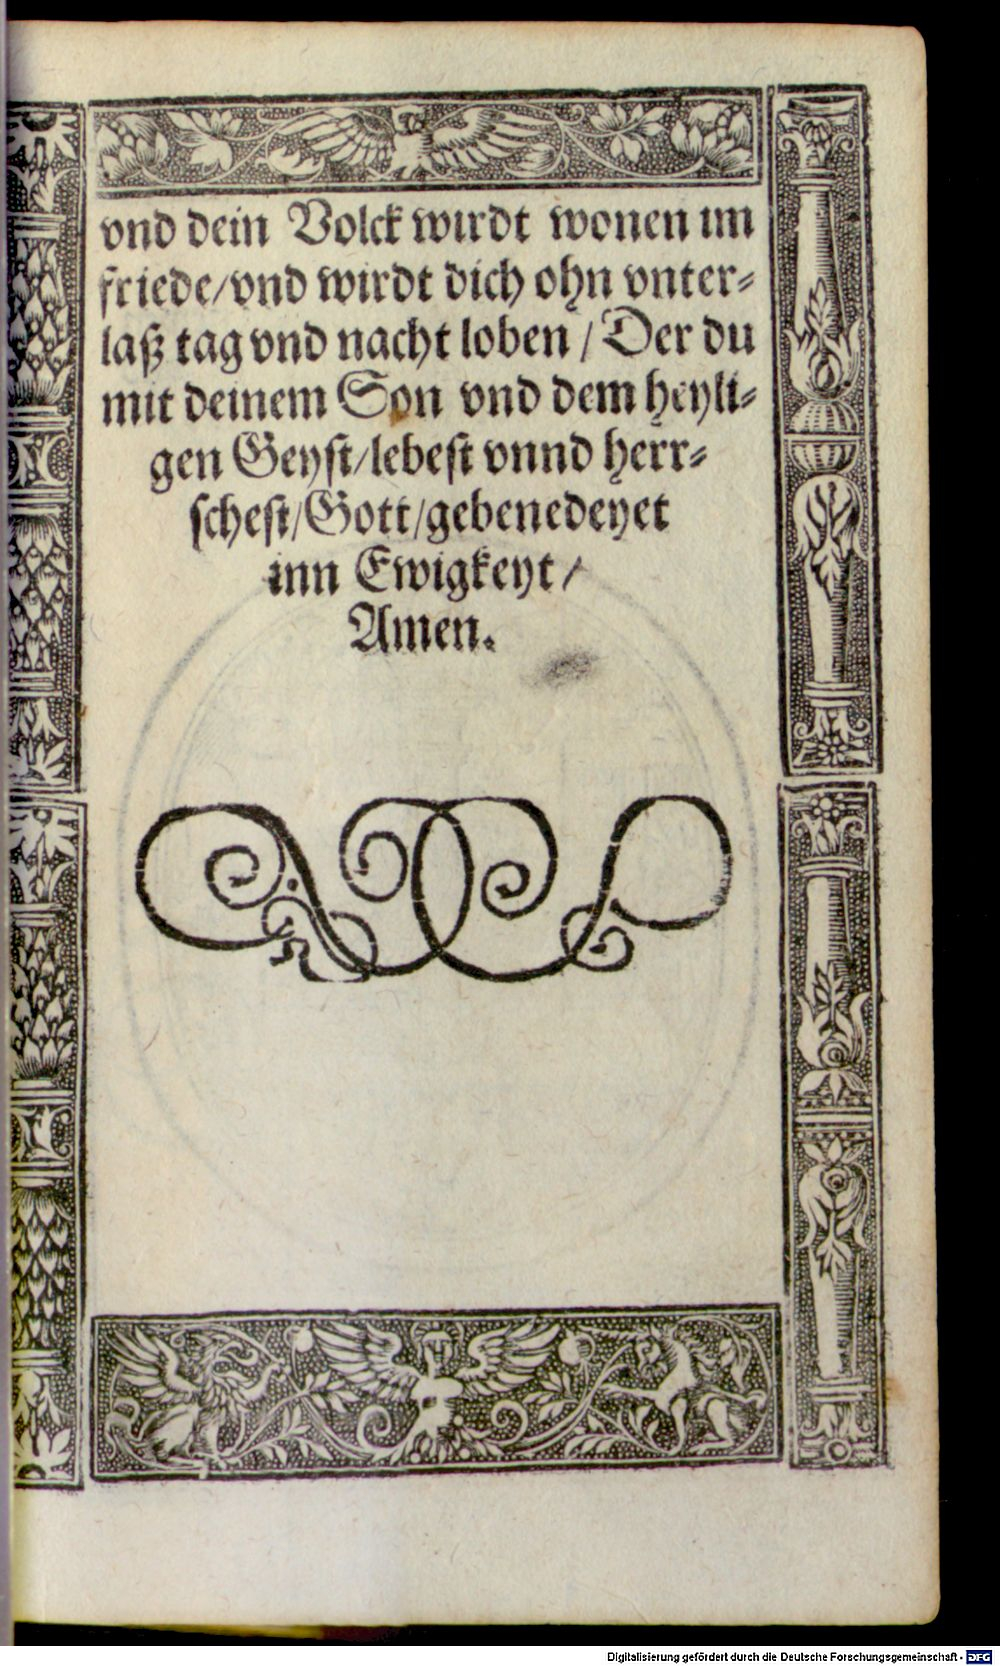 vnd dein Volck wirdt wonen im
friede/vnd wirdt dich ohn vnter⸗
laß tag vnd nacht loben / Der du
mit deinem Son vnd dem heyli⸗
gen Geyst/lebest vnnd herr⸗
schest/Gott/gebenedeyet
inn Ewigkeyt /
Amen.
Digitalisierung gefördert durch die Deutsche Forschungsgemeinschaft - DFG